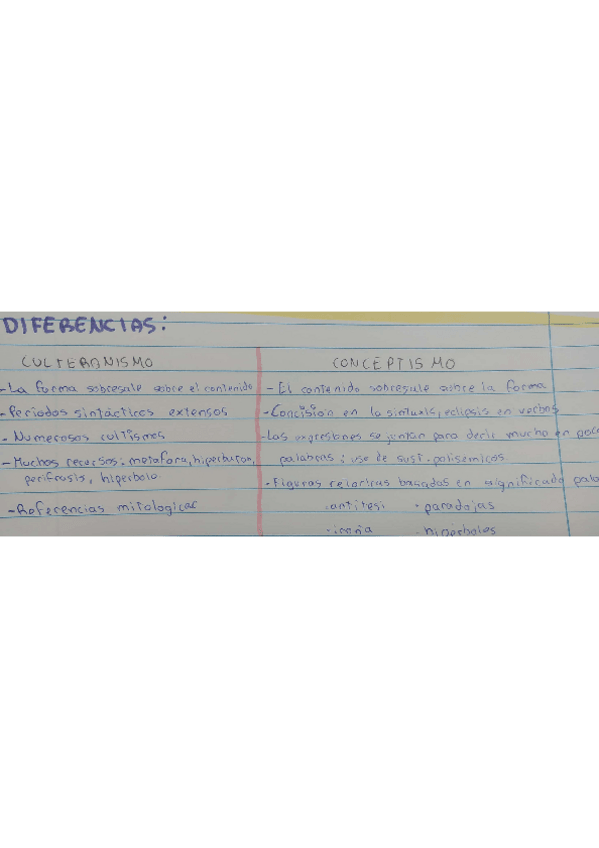 DIFERENCIAS:
CULTERANISMO
- La forma sobresale sobre el contenido
- Periodos sintácticos extensos
- Numerosos cultismos
- Muchos recursos: metafora, hiperbaton,
perifrasis, hiperbole
- Referencias mitologicas
CONCEPTISMO
- El contenido sobresale sobre la forma
- Concision en la sintaxis, eclipsis en verbos
- Las expresiones se juntan para decir mucho en poc
palabras: uso de sust. polisemicos
- Figuras retoricas basadas en significado pala
· antitesi · paradojas
· ironia · hiperboles